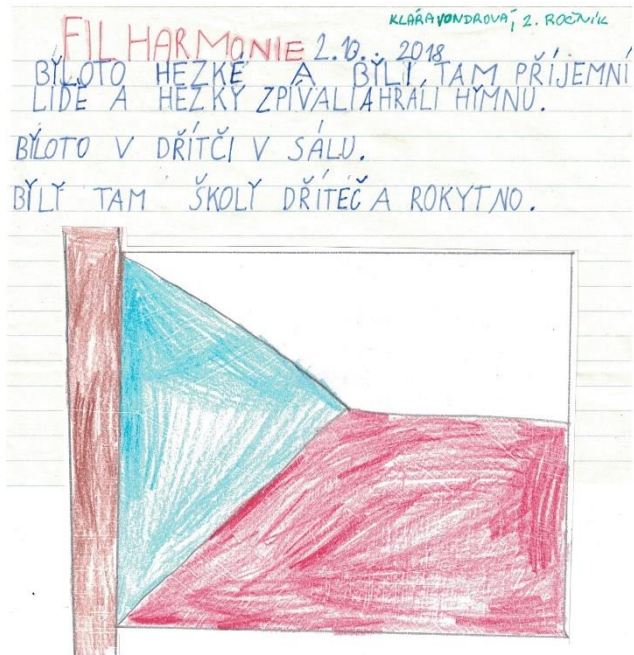 KLÁRA VONDROVÁ, 2. ROČNÍK
FILHARMONIE 2.10. 2018
BÝLOTO HEZKÉ A BÝLÍ TAM PŘÍJEMNÍ
LIDÉ A HEZKÝ ZPÍVALI A HRÁLÍ HÝMNU.
BÝLOTO V DŘÍTČI V SÁLU.
BÝLÝ TAM ŠKOLÝ DŘÍTEČ A ROKYTNO.